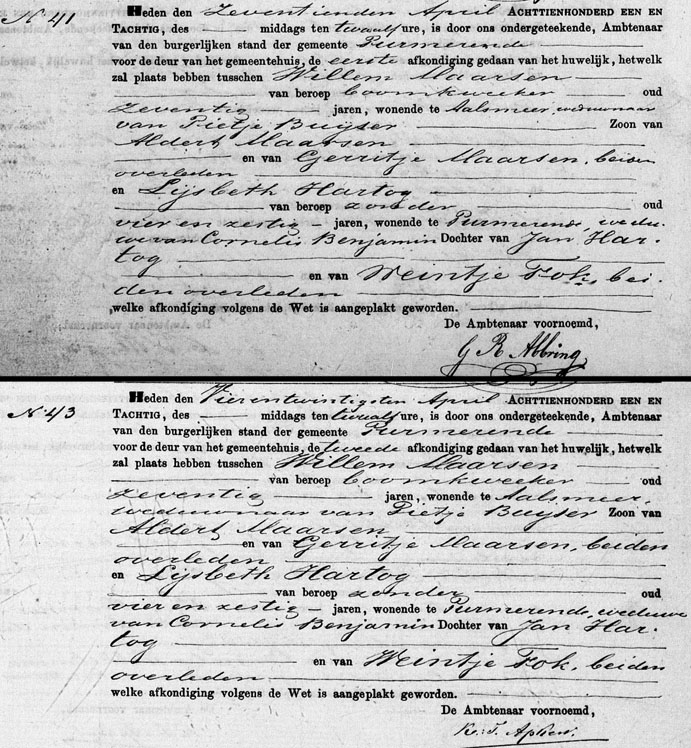 N. 41
Heden den Zeventienden April ACHTTIENHONDERD EEN EN
TACHTIG, des middags ten twaalf ure, is door ons ondergeteekende, Ambtenaar
van den burgerlijken stand der gemeente Purmerende
voor de deur van het gemeentehuis, de eerste afkondiging gedaan van het huwelijk, hetwelk
zal plaats hebben tusschen Willem Maarsen
van beroep boomkweeker oud
zeventig jaren, wonende te Aalsmeer, weduwnaar
van Pietje Buyser Zoon van
Aldert Maarsen
en van Gerritje Maarsen, beiden
overleden
en Lijsbeth Hartog
van beroep zonder oud
vier en zestig jaren, wonende te Purmerende, wedu-
we van Cornelis Benjamin Dochter van Jan Har-
tog
en van Weintje Tok, bei-
den overleden
welke afkondiging volgens de Wet is aangeplakt geworden.
De Ambtenaar voornoemd,
G R Abbring
N. 43
Heden den Vierentwintigsten April ACHTTIENHONDERD EEN EN
TACHTIG, des middags ten twaalf ure, is door ons ondergeteekende, Ambtenaar
van den burgerlijken stand der gemeente Purmerende
voor de deur van het gemeentehuis, de tweede afkondiging gedaan van het huwelijk, hetwelk
zal plaats hebben tusschen Willem Maarsen
van beroep boomkweeker oud
zeventig jaren, wonende te Aalsmeer,
weduwnaar van Pietje Buyser Zoon van
Aldert Maarsen
en van Gerritje Maarsen, beiden
overleden
en Lijsbeth Hartog
van beroep zonder oud
vier en zestig jaren, wonende te Purmerende, weduwe
van Cornelis Benjamin Dochter van Jan Har-
tog
en van Weintje Tok, beiden
overleden
welke afkondiging volgens de Wet is aangeplakt geworden.
De Ambtenaar voornoemd,